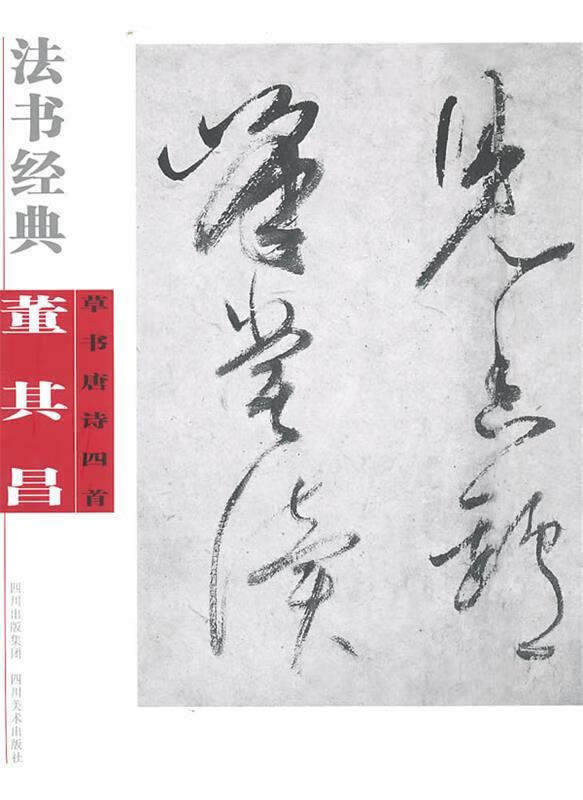 法书经典
董其昌
草书唐诗四首
見香爐
峯嘗讀
四川出版集团 四川美术出版社